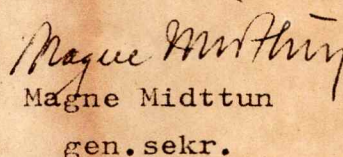 Magne Midttun
Magne Midttun
gen.sekr.